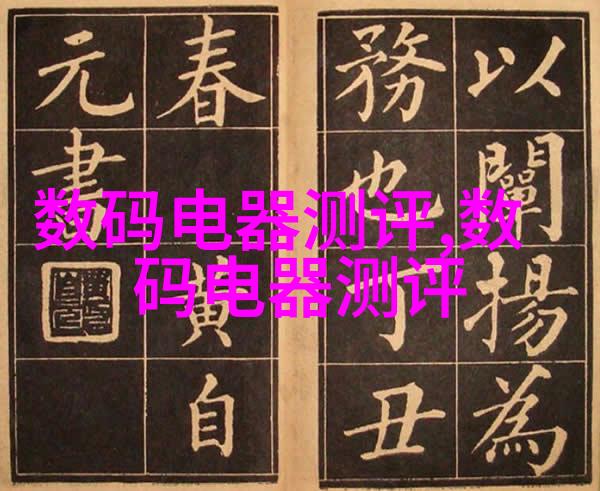 以闡揚為
務也丁丑
春 黃自
元書
数码电器测评,数
码电器测评